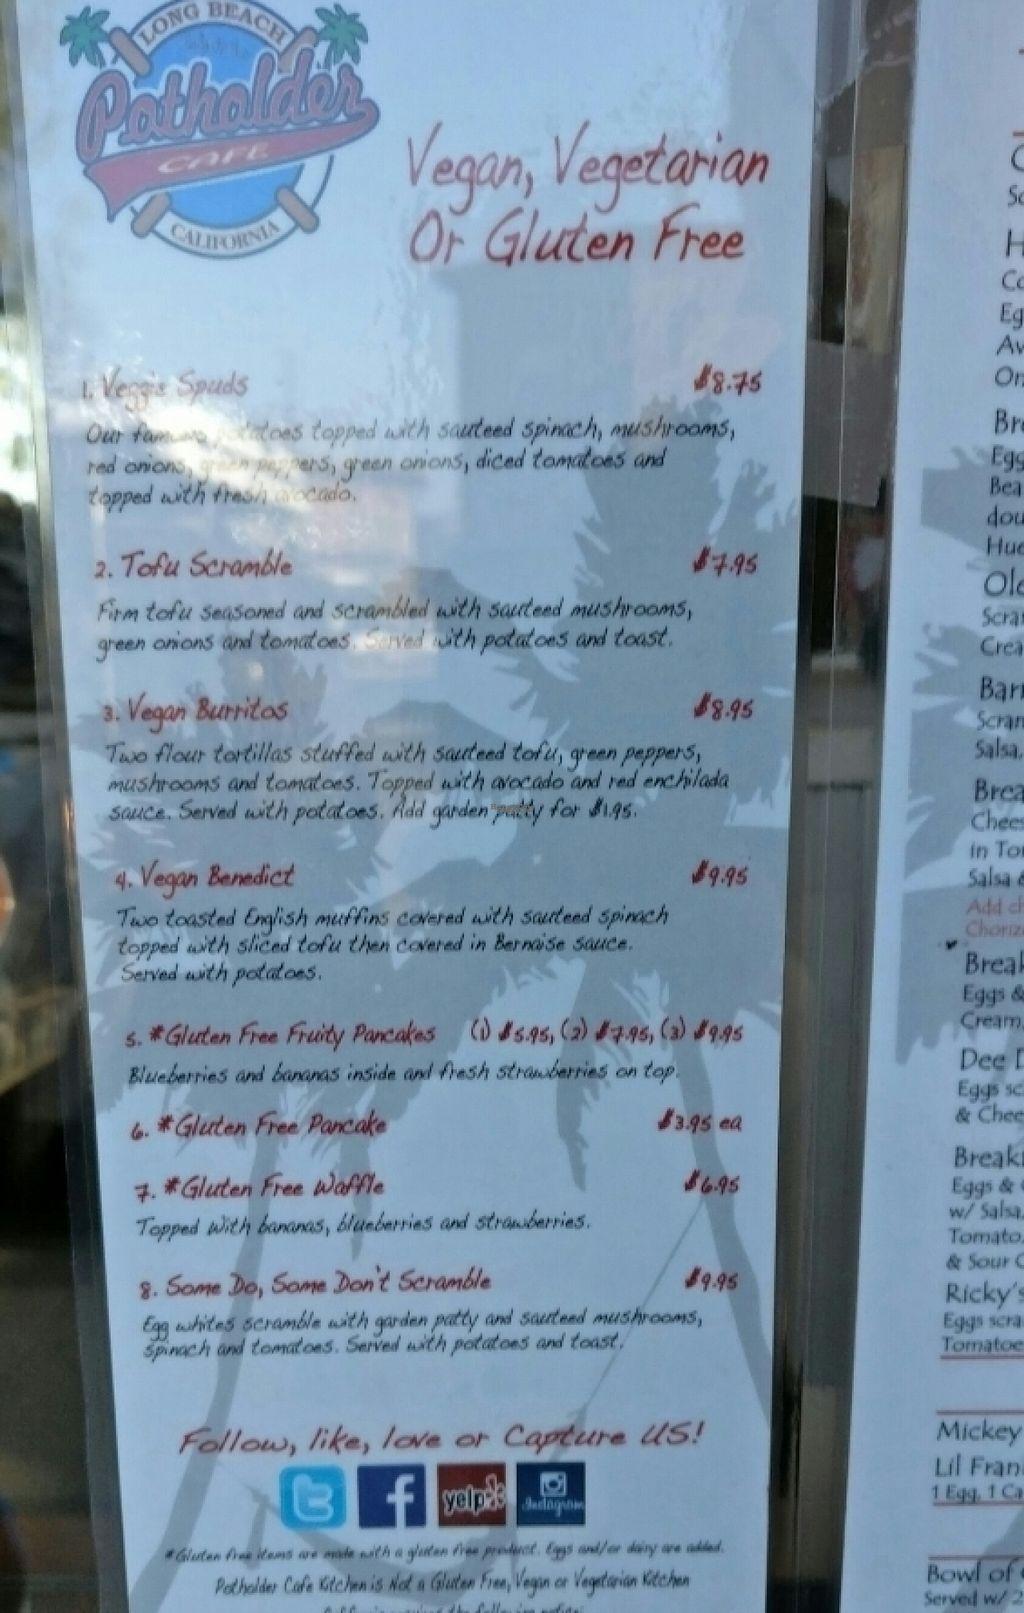 LONG BEACH
Potholder
CAFE
CALIFORNIA
Vegan, Vegetarian
Or Gluten Free
1. Veggie Spuds $8.75
Our famous potatoes topped with sauteed spinach, mushrooms,
red onions, green peppers, green onions, diced tomatoes and
topped with fresh avocado.
2. Tofu Scramble $7.95
Firm tofu seasoned and scrambled with sauteed mushrooms,
green onions and tomatoes. Served with potatoes and toast.
3. Vegan Burritos $8.95
Two flour tortillas stuffed with sauteed tofu, green peppers,
mushrooms and tomatoes. Topped with avocado and red enchilada
sauce. Served with potatoes. Add garden patty for $1.95.
4. Vegan Benedict $9.95
Two toasted English muffins covered with sauteed spinach
topped with sliced tofu then covered in Bernaise sauce.
Served with potatoes.
5. *Gluten Free Fruity Pancakes (1) $5.95, (2) $7.95, (3) $9.95
Blueberries and bananas inside and fresh strawberries on top.
6. *Gluten Free Pancake $3.95 ea
7. *Gluten Free Waffle $6.95
Topped With bananas, blueberries and strawberries.
8. Some Do, Some Don't Scramble $9.95
Egg whites scramble with garden patty and sauteed mushrooms,
spinach and tomatoes. Served with potatoes and toast.
Follow, like, love or Capture US!
yelp
Instagram
*Gluten free items are made with a gluten free product. Eggs and/or dairy are added.
Potholder Cafe Kitchen is Not a Gluten Free, Vegan or Vegetarian Kitchen
Salsa,
in
Salsa &
Add
Eggs &
Cream,
Eggs
& 
Eggs &
w/ Salsa,
Tomato,
& Sour
Ricky's
Mickey
Lil
1 Egg, 1
Bowl of
Served w/ 2